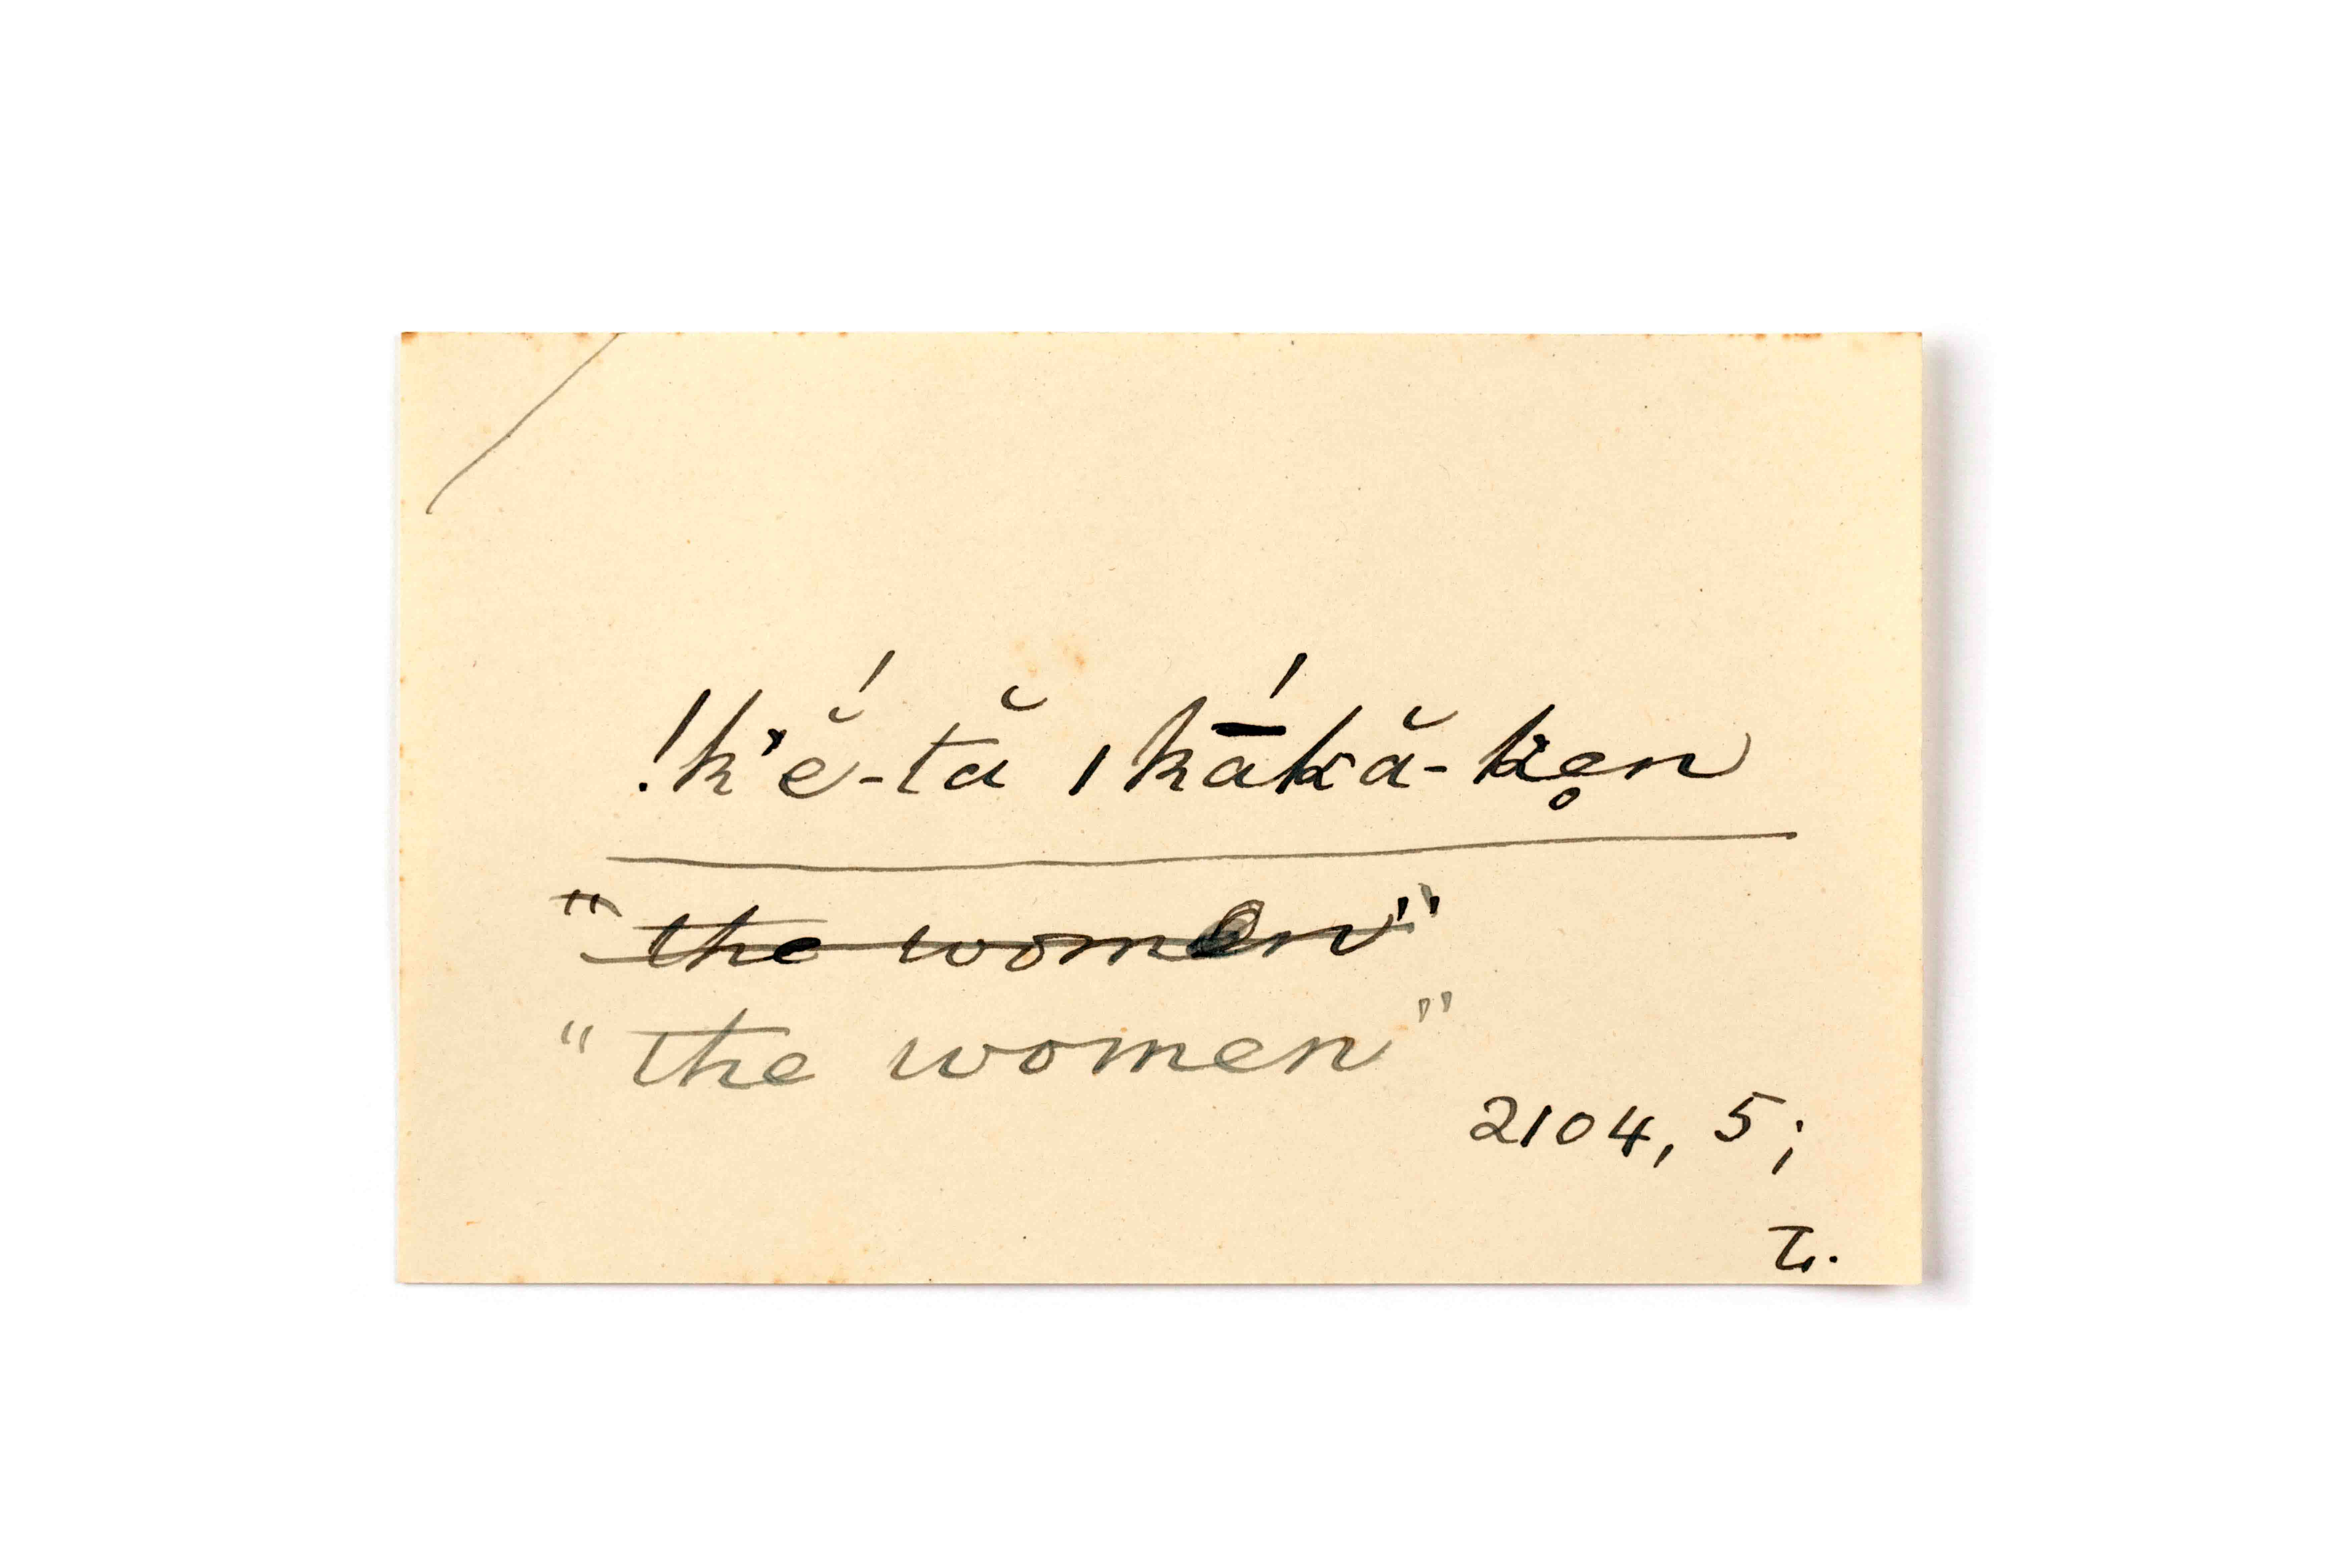 !kʼĕ́-tă ǀkā́kă-ke̥n
"the women"
"the women"
2104, 5;
τ.